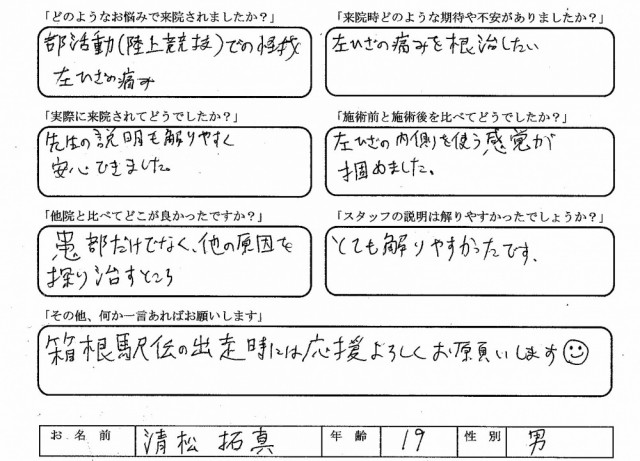 「どのようなお悩みで来院されましたか？」
部活動(陸上競技)での怪我
左ひざの痛み
「来院時どのような期待や不安がありましたか？」
左ひざの痛みを根治したい
「実際に来院されてどうでしたか？」
先生の説明も解りやすく
安心できました。
「施術前と施術後を比べてどうでしたか？」
左ひざの内側を使う感覚が
掴めました。
「他院と比べてどこが良かったですか？」
患部だけでなく、他の原因を
探り治すところ
「スタッフの説明は解りやすかったでしょうか？」
とても解りやすかったです。
「その他、何か一言あればお願いします」
箱根駅伝の出走時には応援よろしくお願いします☺
お名前 清松 拓真 年齢 19 性別 男